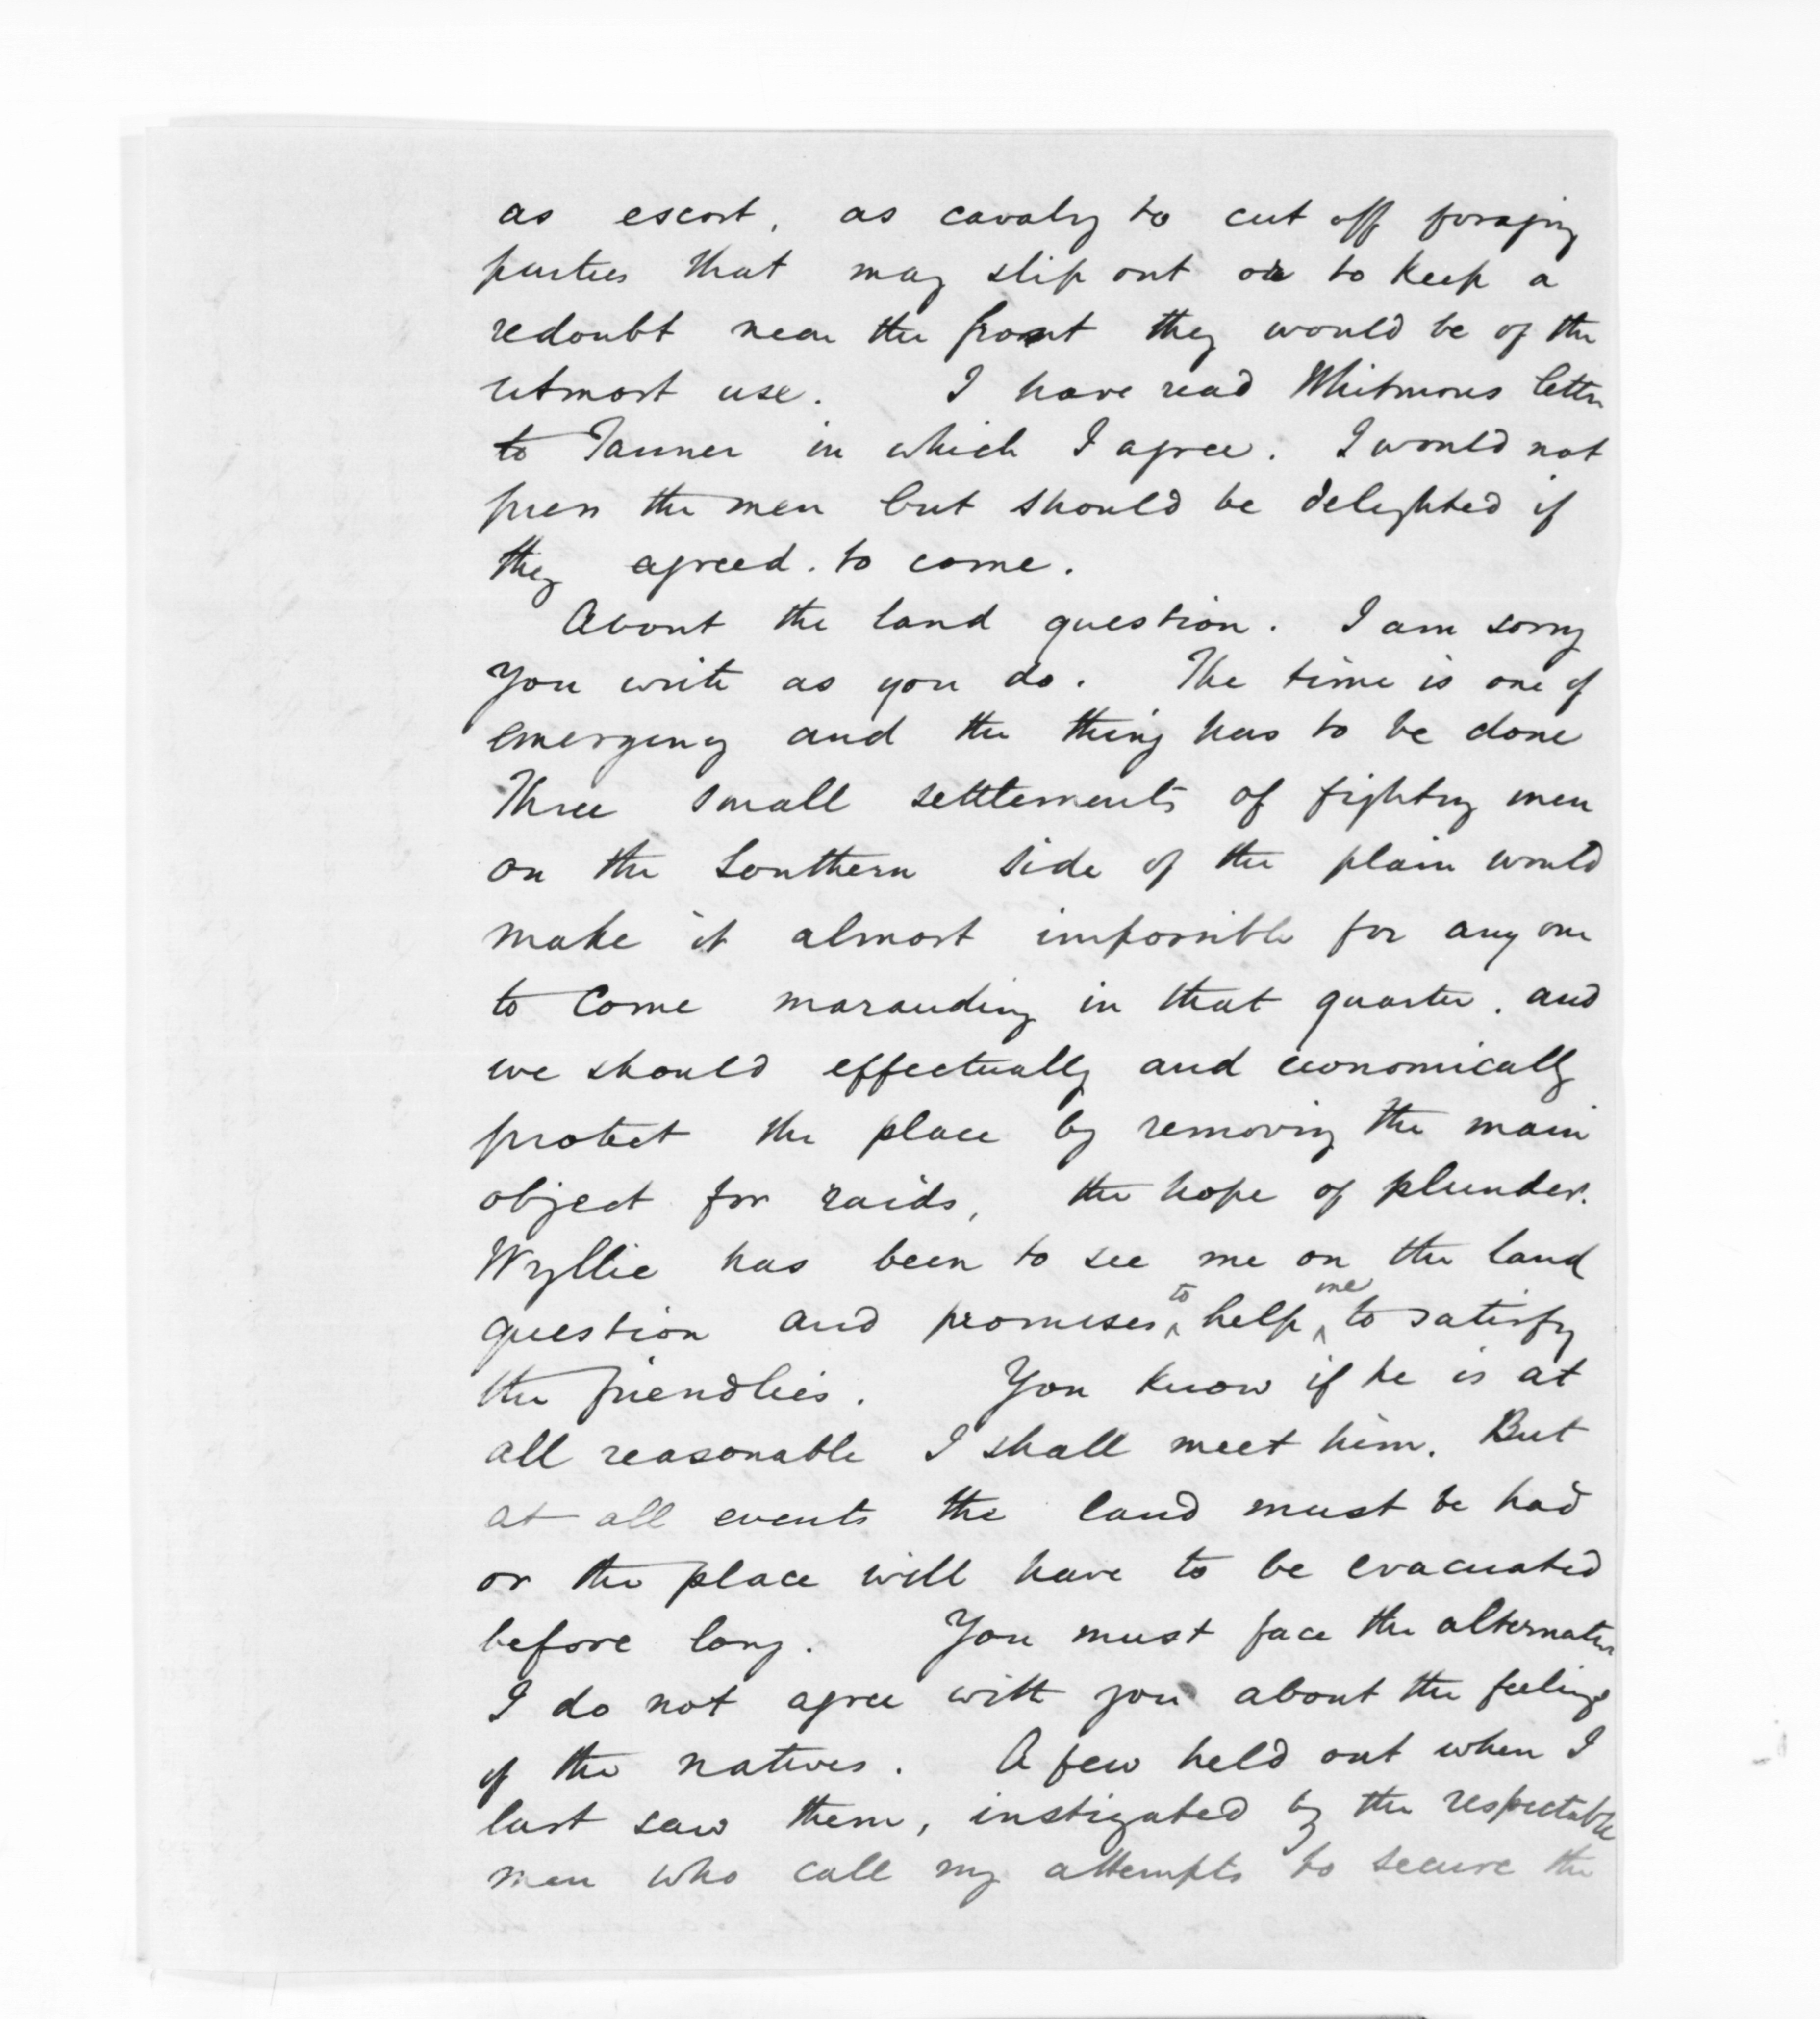 as escort, as cavalry to cut off foraging
parties that may slip out or to keep a
redoubt near the front they would be of the
utmost use. I have read Whitmores letter
to Tanner in which I agree. I would not
press the men but should be delighted if
they agreed. to come.
About the land question. I am sorry
you write as you do. The time is one of
emergency and the thing has to be done
Three small settlements of fighting men
on the Southern side of the plain would
make it almost impossible for any one
to come marauding in that quarter. and
we should effectually and economically
protect the place by removing the main
object for raids, the hope of plunder.
Wyllie has been to see me on the land
question and promises to help me to satisfy
the friendlies. You know if he is at
all reasonable I shall meet him. But
at all events the land must be had
or the place will have to be evacuated
before long. You must face the alternative
I do not agree with you about the feelings
of the natives. A few held out when I
last saw them, instigated by the respectable
men who call my attempts to secure the